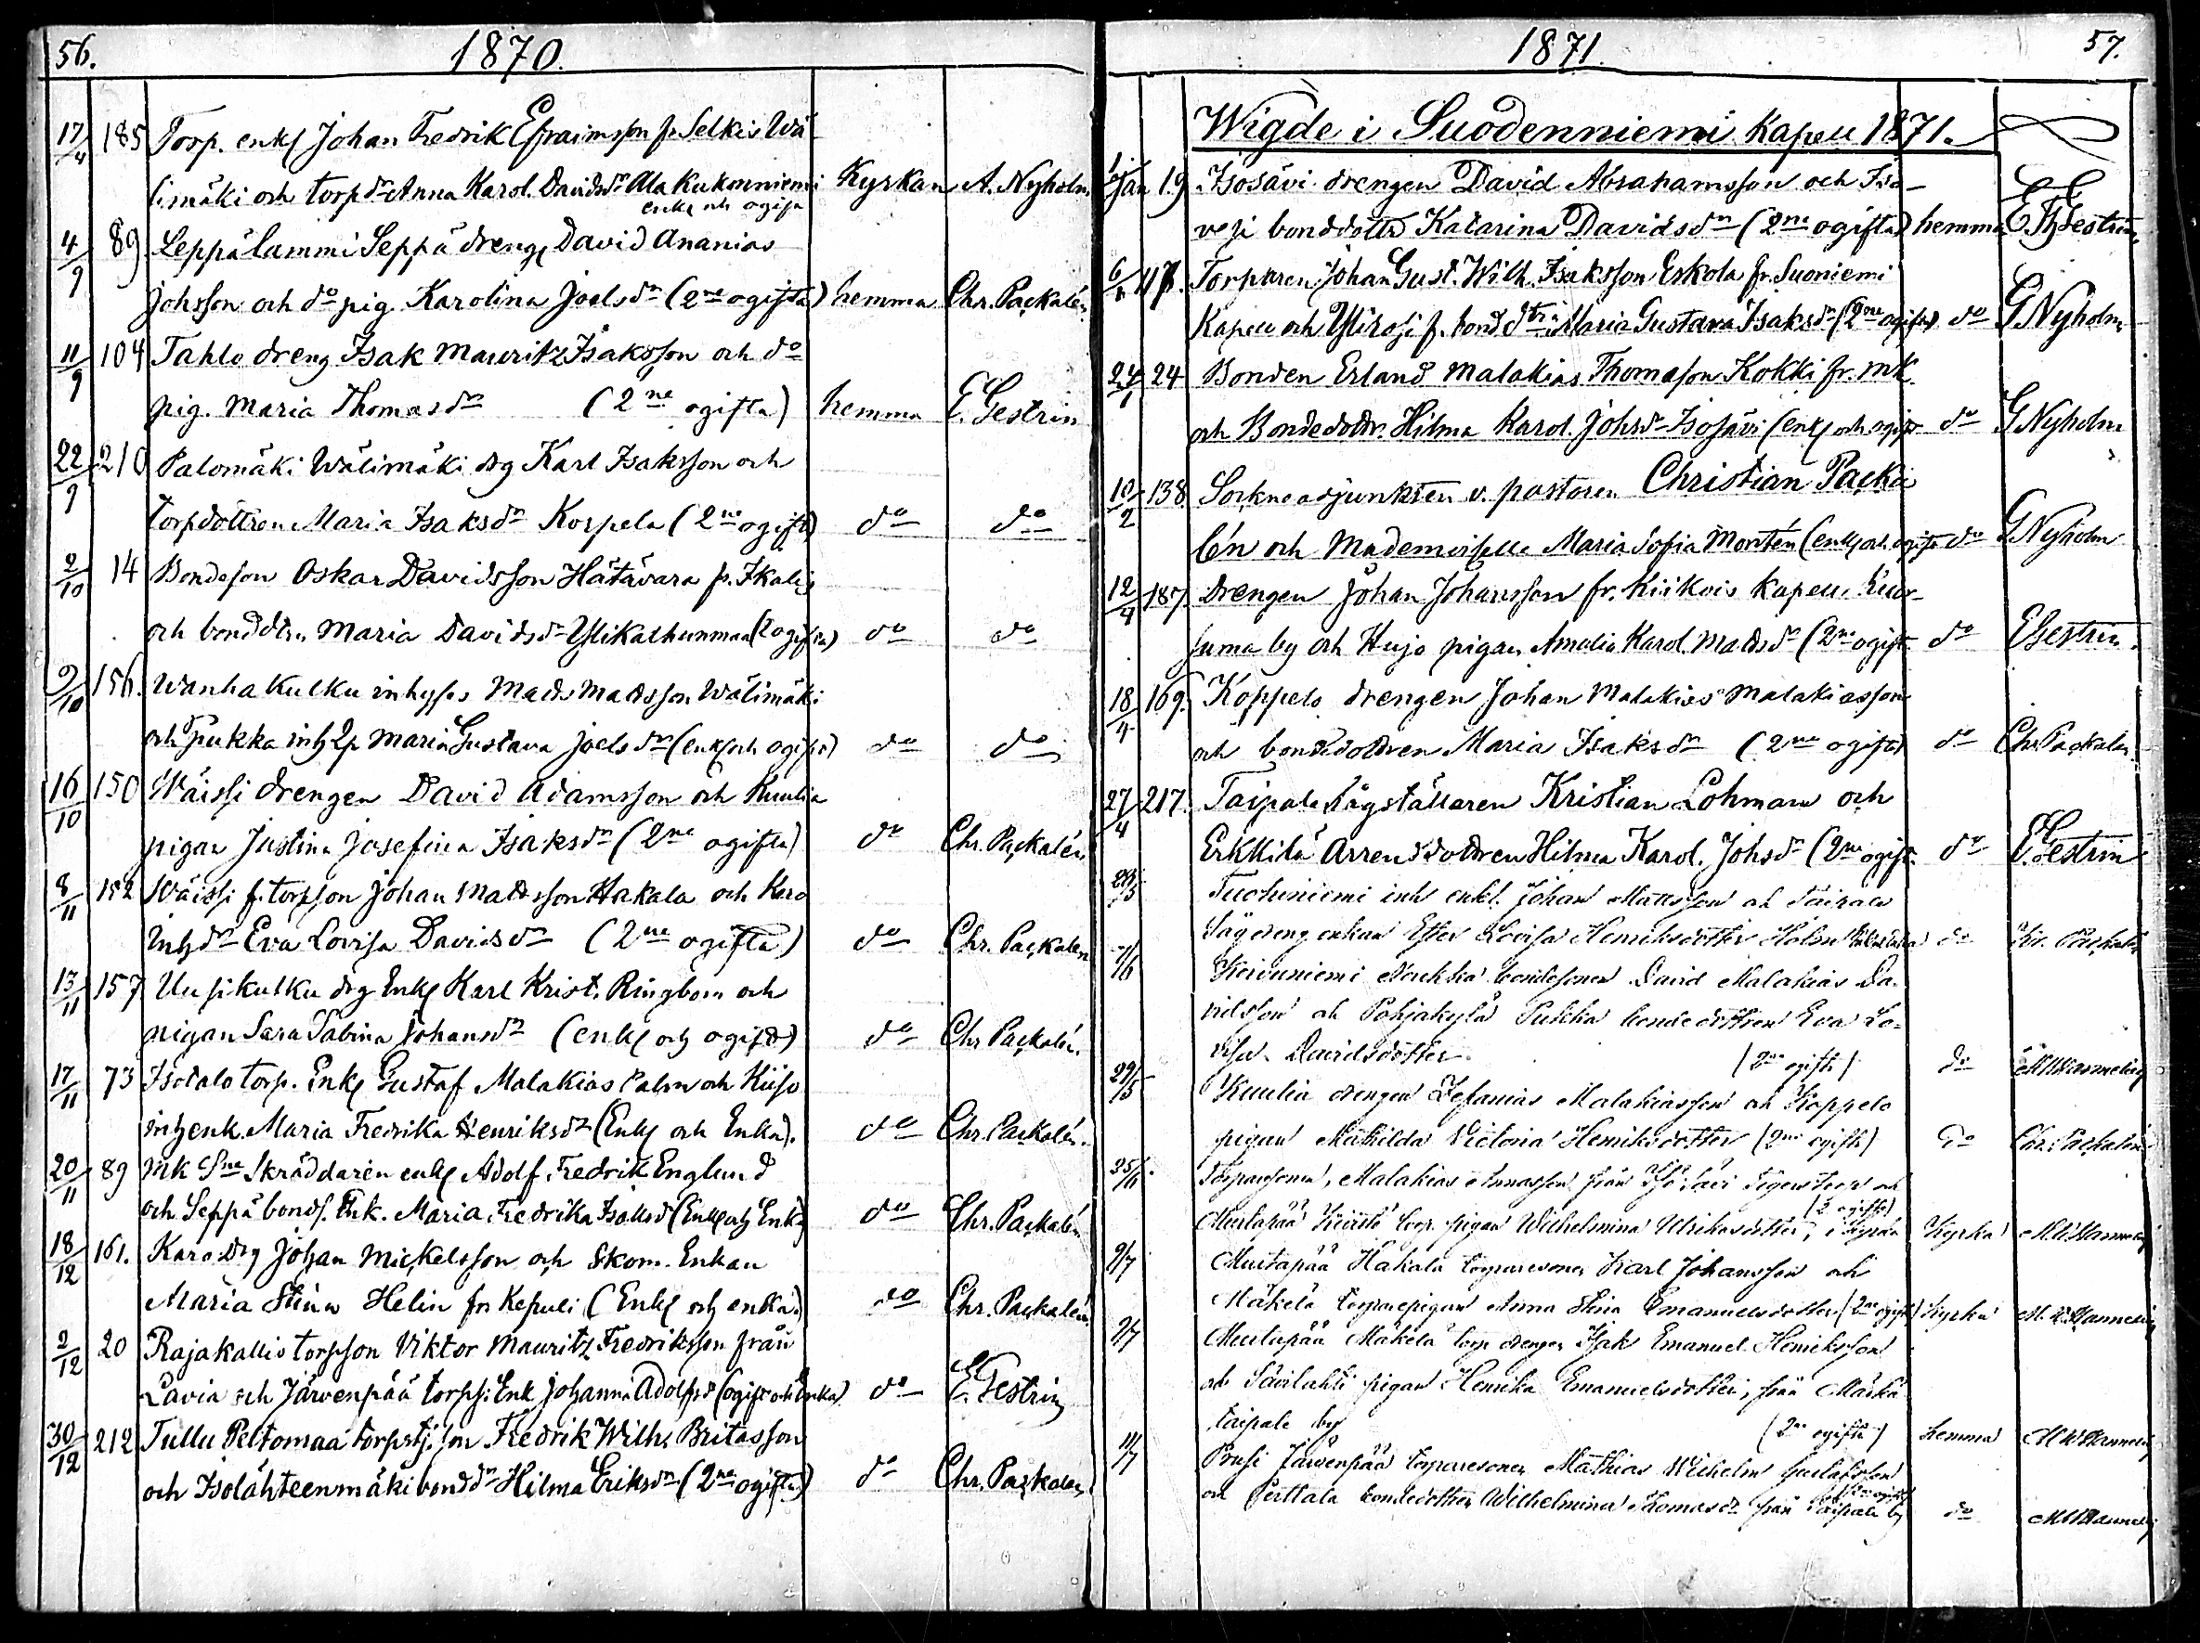 56.
1870.
17/4 185 Torp. enkl Johan Fredrik Efraimsson fr. Selkis Wä-
limäki och torpdr Anna Karol. Davidsdr Ala Kukonniemi Kyrkan A. Nyholm
enkl och ogifta
4/9 89 Leppälammi Seppä dreng David Ananias
Johsson och do pig. Karolina Joelsdr (2ne ogifta) hemma Chr. Packalén
11/9 104 Tahlo dreng Isak Mauritz Isaksson och do
pig. Maria Thomasdr (2ne ogifta) hemma E. Gestrin
22/9 210 Palomäki Wälimäki drg Karl Isaksson och
torpdottren Maria Isaksdr Korpela (2ne ogift) do do
2/10 14 Bondeson Oskar Davidsson Hätävara fr. Ikalis
och bonddtrn Maria Davidsdr Ylikalhunmaa (2 ogifta) do do
9/10 156. Wanhakulku inhyses Mads Madsson Wälimäki
och Pukka inh Maria Gustava Joelsdr (enkl och ogift) do do
16/10 150 Wäissi drengen David Adamsson och Kuulia
pigan Justina Josefina Isaksdr (2ne ogifta) do Chr. Packalén
8/11 152 Wäissi f. torpson Johan Madsson Hakala och Karo
inhdr Eva Lovisa Davidsdr (2ne ogifta) do Chr. Packalén
13/11 157 Uusikulku drg Enkl Karl Krist. Ringbom och
pigan Sara Sabina Johansdr (enkl och ogifta) do Chr Packalén.
17/11 73 Isotalo torp. Enkl Gustaf Malakias Palm och Kiiso
inhenk. Maria Fredrika Henriksdr (Enkl och Enka). do Chr. Packalén.
20/11 89 mk Sne Skräddaren enkl Adolf Fredrik Englund
och Seppä bonds. Enk. Maria Fredrika Isaksd (Enkl och Enka) do Chr. Packalén
18/12 161. Karo drg Johan Mickelsson och Skom. Enkan
Maria Stina Helin frn Kepuli (Enkl och enka) do Chr. Packalén.
2/12 20 Rajakallio torpson Viktor Mauritz Fredriksson från
Lavia och Järvenpää torps. Enk Johanna Adolfsd (ogift och Enka) do E. Gestrin
30/12 212 Tullu Peltomaa torpstj. son Fredrik Wilh. Britasson
och Isolähteenmäki bonddr Hilma Eriksdr (2ne ogifta) do Chr. Packalén
1871.
57.
Wigde i Suodenniemi Kapell 1871.
1/Jan 19. Isosävi drengen David Abrahamsson och Iso-
vesi bonddottr Katarina Davidsdr (2ne ogifta) hemma E. Gestrin
6/1 117. Torparen Johan Gust. Wilh. Isaksson Eskola fr. Suoniemi
Kapell och Ylikosi f. bonddtrn Maria Gustava Isaksdr (2ne ogifta) do G Nyholm
24/1 24 Bonden Erland Malakias Thomason Kokki fr. mk.
och Bondedottr. Hilma Karol. Johsdr Isosävi (enkl och ogift do G Nyholm
10/2 138. Sockneadjunkten v. pastoren Christian Packa
lén och Mademoiselle Maria Sofia Montén (enkl och ogift do G Nyholm
12/4 187. Drengen Johan Johansson fr. Kiikois Kapell Kuor-
suma by och Kujo pigan Amalia Karol. Madsdr (2ne ogift do E Gestrin.
18/4 169. Koppelo drengen Johan Malakias Malakiasson
och bondedottren Maria Isaksdr (2ne ogifta) do Chr Packalén
27/4 217. Taipale Lågställaren Kristian Lohman och
Erkkilä Arrendsdottren Hilma Karol. Johsdr (2ne ogift. do E. Gestrin
28/5 inh enkl. Johan Mattsson och Taipale
enkan Ester Lovisa Henriksdotter Holm do Chr. Packalén
7/6 Koivuniemi bondesonen David Malakias Da-
vidsson och Pohjakylä Pukka bondedottren Eva Lo-
visa Davidsdotter (2ne ogifta) do
29/5 Kuulia drengen Zefanias Malakiasson och Koppelo
pigan Mathilda Victoria Henriksdotter (2ne ogifta) do Chr. Packalén
25/6 Torparsonen, Malakias Annasson från Isosävi torp och
Mustapää torp. pigan Wilhelmina Ulriksdotter, (2 ogifta) i Kyrkan Kyrka
9/7 Mustapää Hakala torparesonen Karl Johansson och
Mäkelä torparepigan Anna Stina Emanuelsdotter (2ne ogift) Kyrka
9/7 Mustapää Mäkelä torp drengen Isak Emanuel Henriksson
och Sävilahti pigan Henrika Emanuelsdotter, från
taipale by (2ne ogifta) hemma
11/7 Järvenpää torparesonen Mathias Wilhelm Gustafsson
och Perttala bondedottren Wilhelmina Thomasdr från Taipale by do